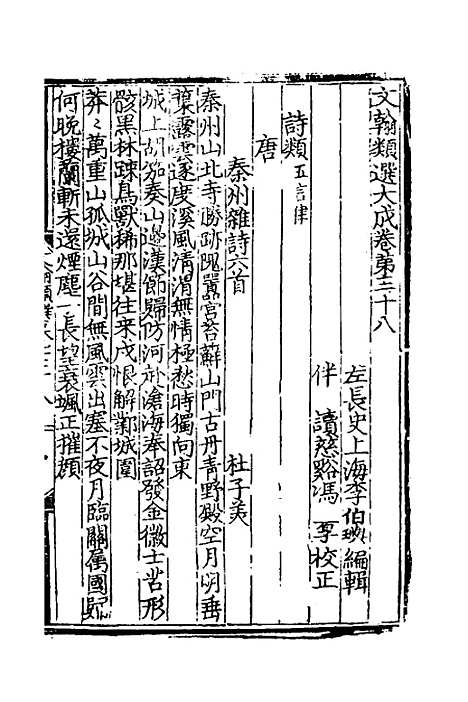 文翰類選大成卷第三十八
左長史上海李伯璵編輯
伴讀慈谿馮厚校正
詩類五言律
唐
秦州雜詩六首 杜子美
秦州山北寺勝跡隗囂宮苔蘚山門古丹青野殿空月明垂
葉露雲逐度溪風清渭無情極愁時獨向東
城上胡笳奏山邊漢節歸防河赴滄海奉詔發金微士苦形
骸黑林疎鳥獸稀那堪往来戍恨解鄴城圍
莽〻萬重山孤城山谷間無風雲出塞不夜月臨關属國歸
何晚樓蘭斬未還煙塵一長望衰颯正摧顔